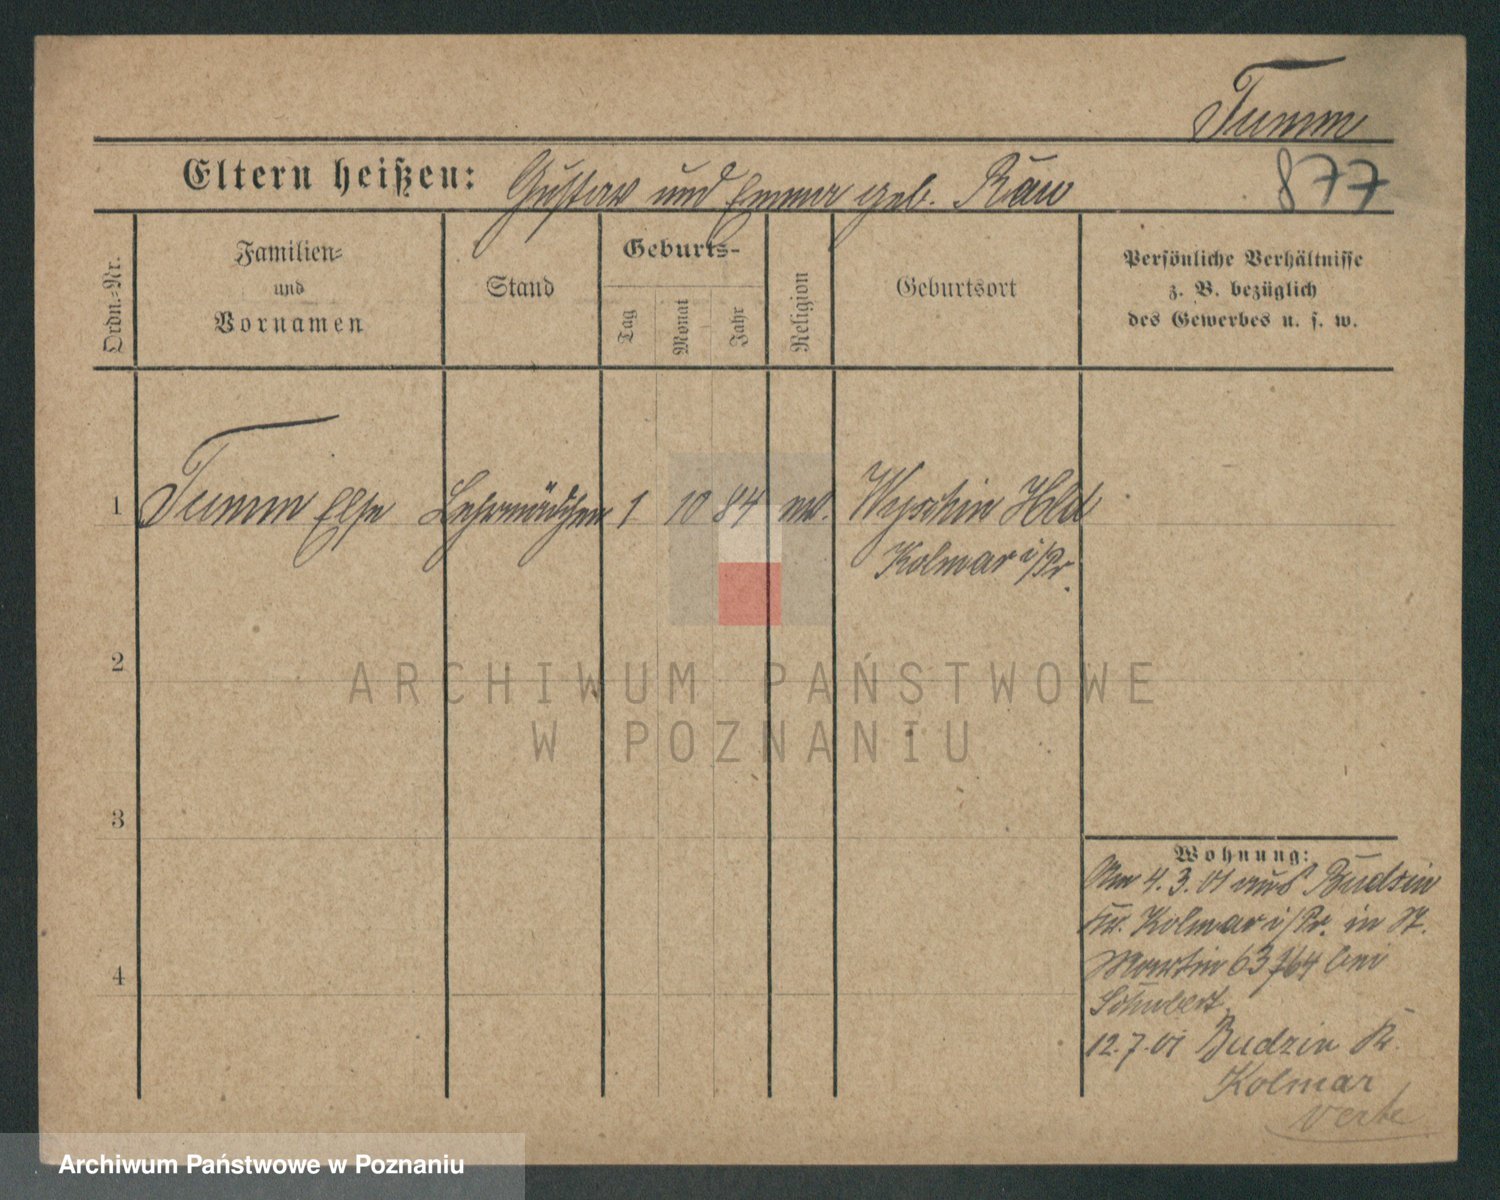 Tumm
Eltern heißen: Gustav und Emma geb. Rau
877
Ordn.-Nr.
Familien-
und
Vornamen
Stand
Geburts-
Tag
Monat
Jahr
Religion
Geburtsort
Persönliche Verhältnisse
z. B. bezüglich
des Gewerbes u. s. w.
1 Tumm Else Lehrmädchen 1 10 84 ev. Wyschin Hld
Kolmar i/Pr.
2
3
4
Wohnung:
Am 4.3.01 aus Budsin
Kr. Kolmar i/Pr. in St.
Martin 63/64 bei
Schubert
12.7.01 Budzin Kr.
Kolmar
ARCHIWUM PAŃSTWOWE
W POZNANIU
Archiwum Państwowe w Poznaniu